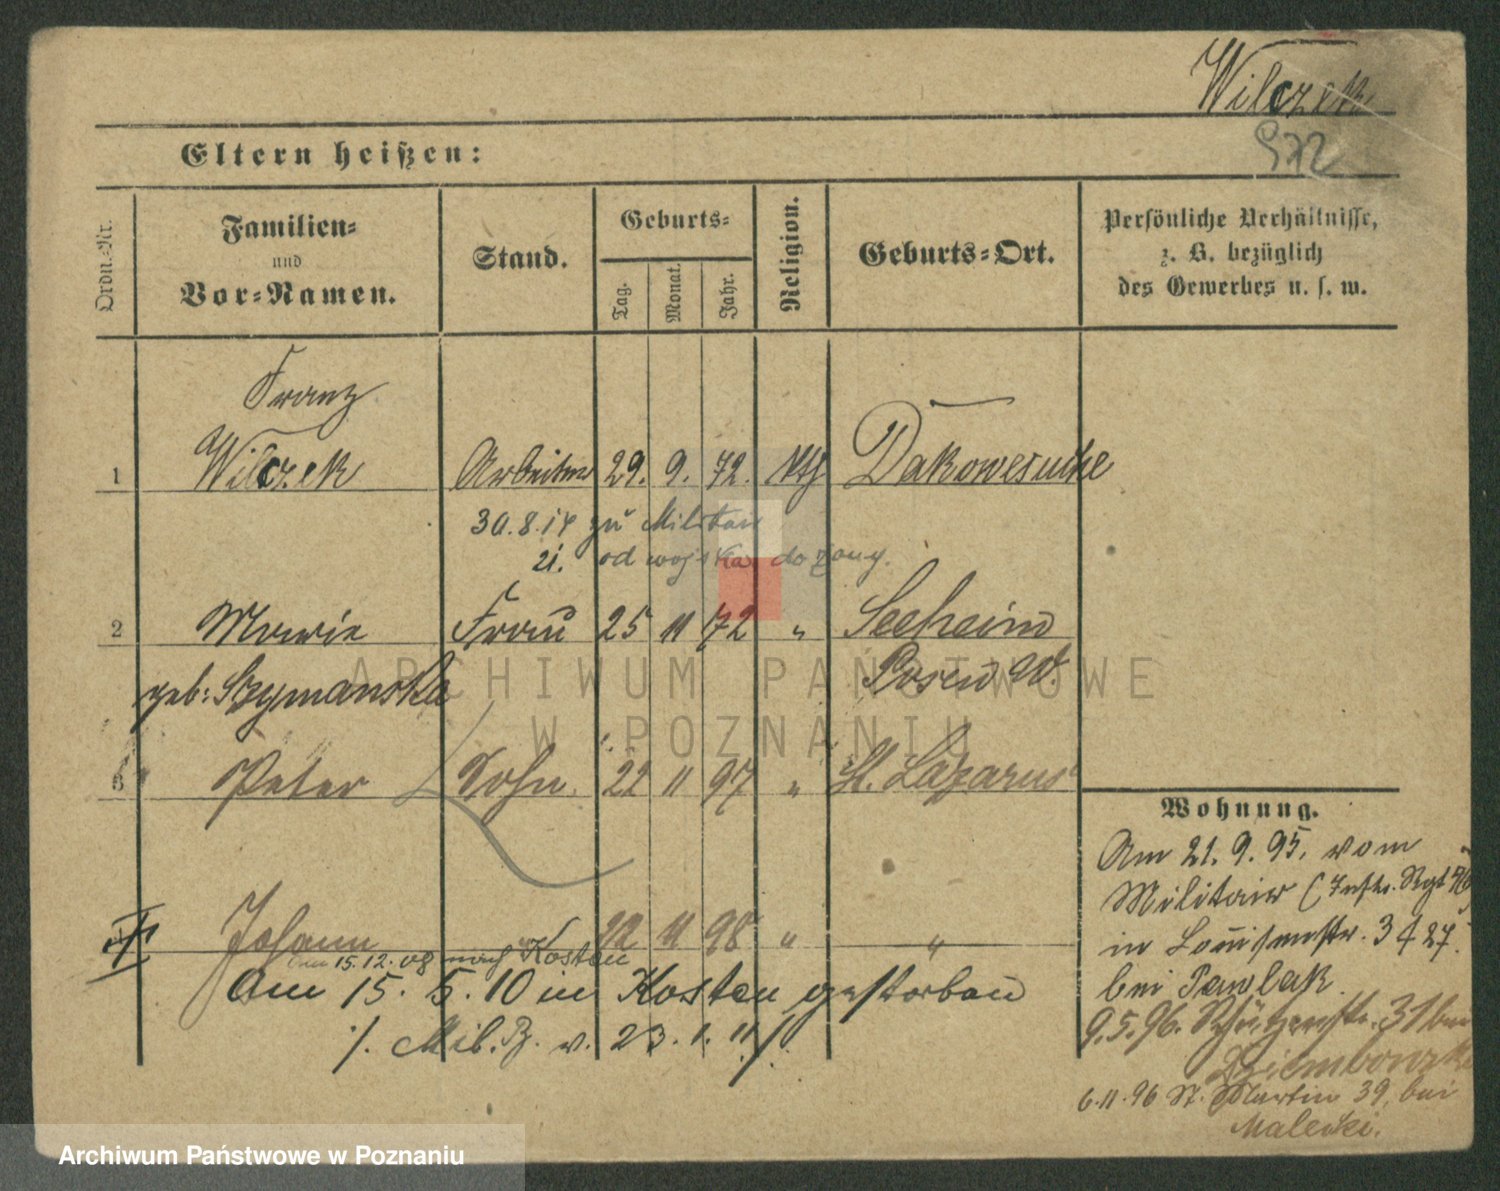 Wilczek
972
Eltern heißen:
Ordn.-Nr.
Familien-
und
Vor-Namen.
Stand.
Geburts-
Tag.
Monat.
Jahr.
Religion.
Geburts-Ort.
Persönliche Verhältnisse,
z. B. bezüglich
des Gewerbes u. s. w.
Franz
1 Wilczek Arbeiter 29. 9. 72. kth
30.8.14 zu Militair
21. od wojska do żony.
2 Marie Frau 25 11 72 " Seeheim
geb: Szymanska Posen W.
3 Peter Sohn. 22 11 97 " St. Lazarus
Johann 22 11 98 " "
am 15.12.08 nach Kosten
Am 15. 5. 10 in Kosten gestorben
/. Mil. B. v. 23. 1. 11 /.
Wohnung.
Am 21. 9. 95. vom
Militair (Inftr. Rgt
in Louisenstr. 3
bei Pawlak.
9.5.96. Schützenstr. 31 bei
6.11.96 St. Martin 39, bei
Maleski.
ARCHIWUM PAŃSTWOWE
W POZNANIU
Archiwum Państwowe w Poznaniu